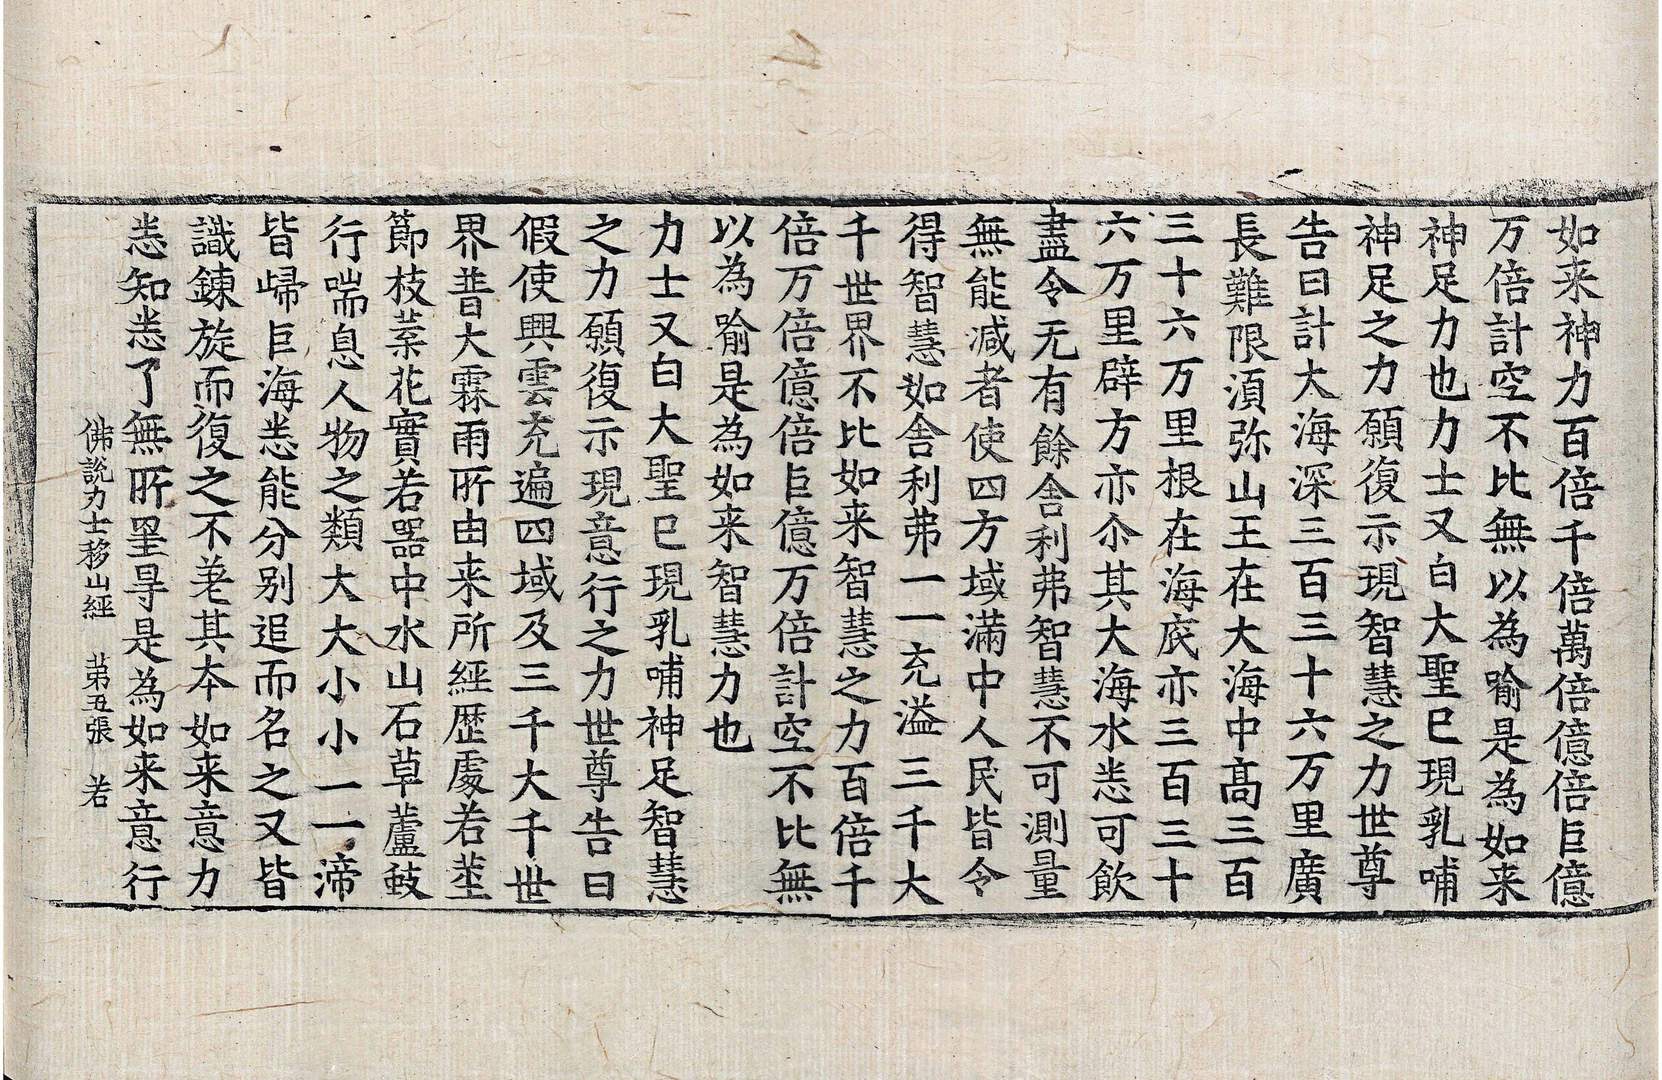 如来神力百倍千倍萬倍億倍巨億
万倍計空不比無以為喻是為如来
神足力也力士又白大聖已現乳哺
神足之力願復示現智慧之力世尊
告曰計大海深三百三十六万里廣
長難限湏弥山王在大海中髙三百
三十六万里根在海底亦三百三十
六万里辟方亦尒其大海水悉可飲
盡令无有餘舍利弗智慧不可測量
無能減者使四方域滿中人民皆令
得智慧如舎利弗一一充溢三千大
千世界不比如来智慧之力百倍千
倍万倍億倍巨億万倍計空不比無
以為喻是為如来智慧力也
力士又白大聖已現乳哺神足智慧
之力願復示現意行之力世尊告曰
假使興雲充遍四域及三千大千世
界普大霖雨所由来所經歴處若莖
節枝葉花實若器中水山石草蘆䔧
行喘息人物之類大大小小一一諦
皆歸巨海悉能分别追而名之又皆
識錬旋而復之不差其本如来意力
悉知悉了無所罣㝵是為如来意行
佛說力士移山經　苐五張　若